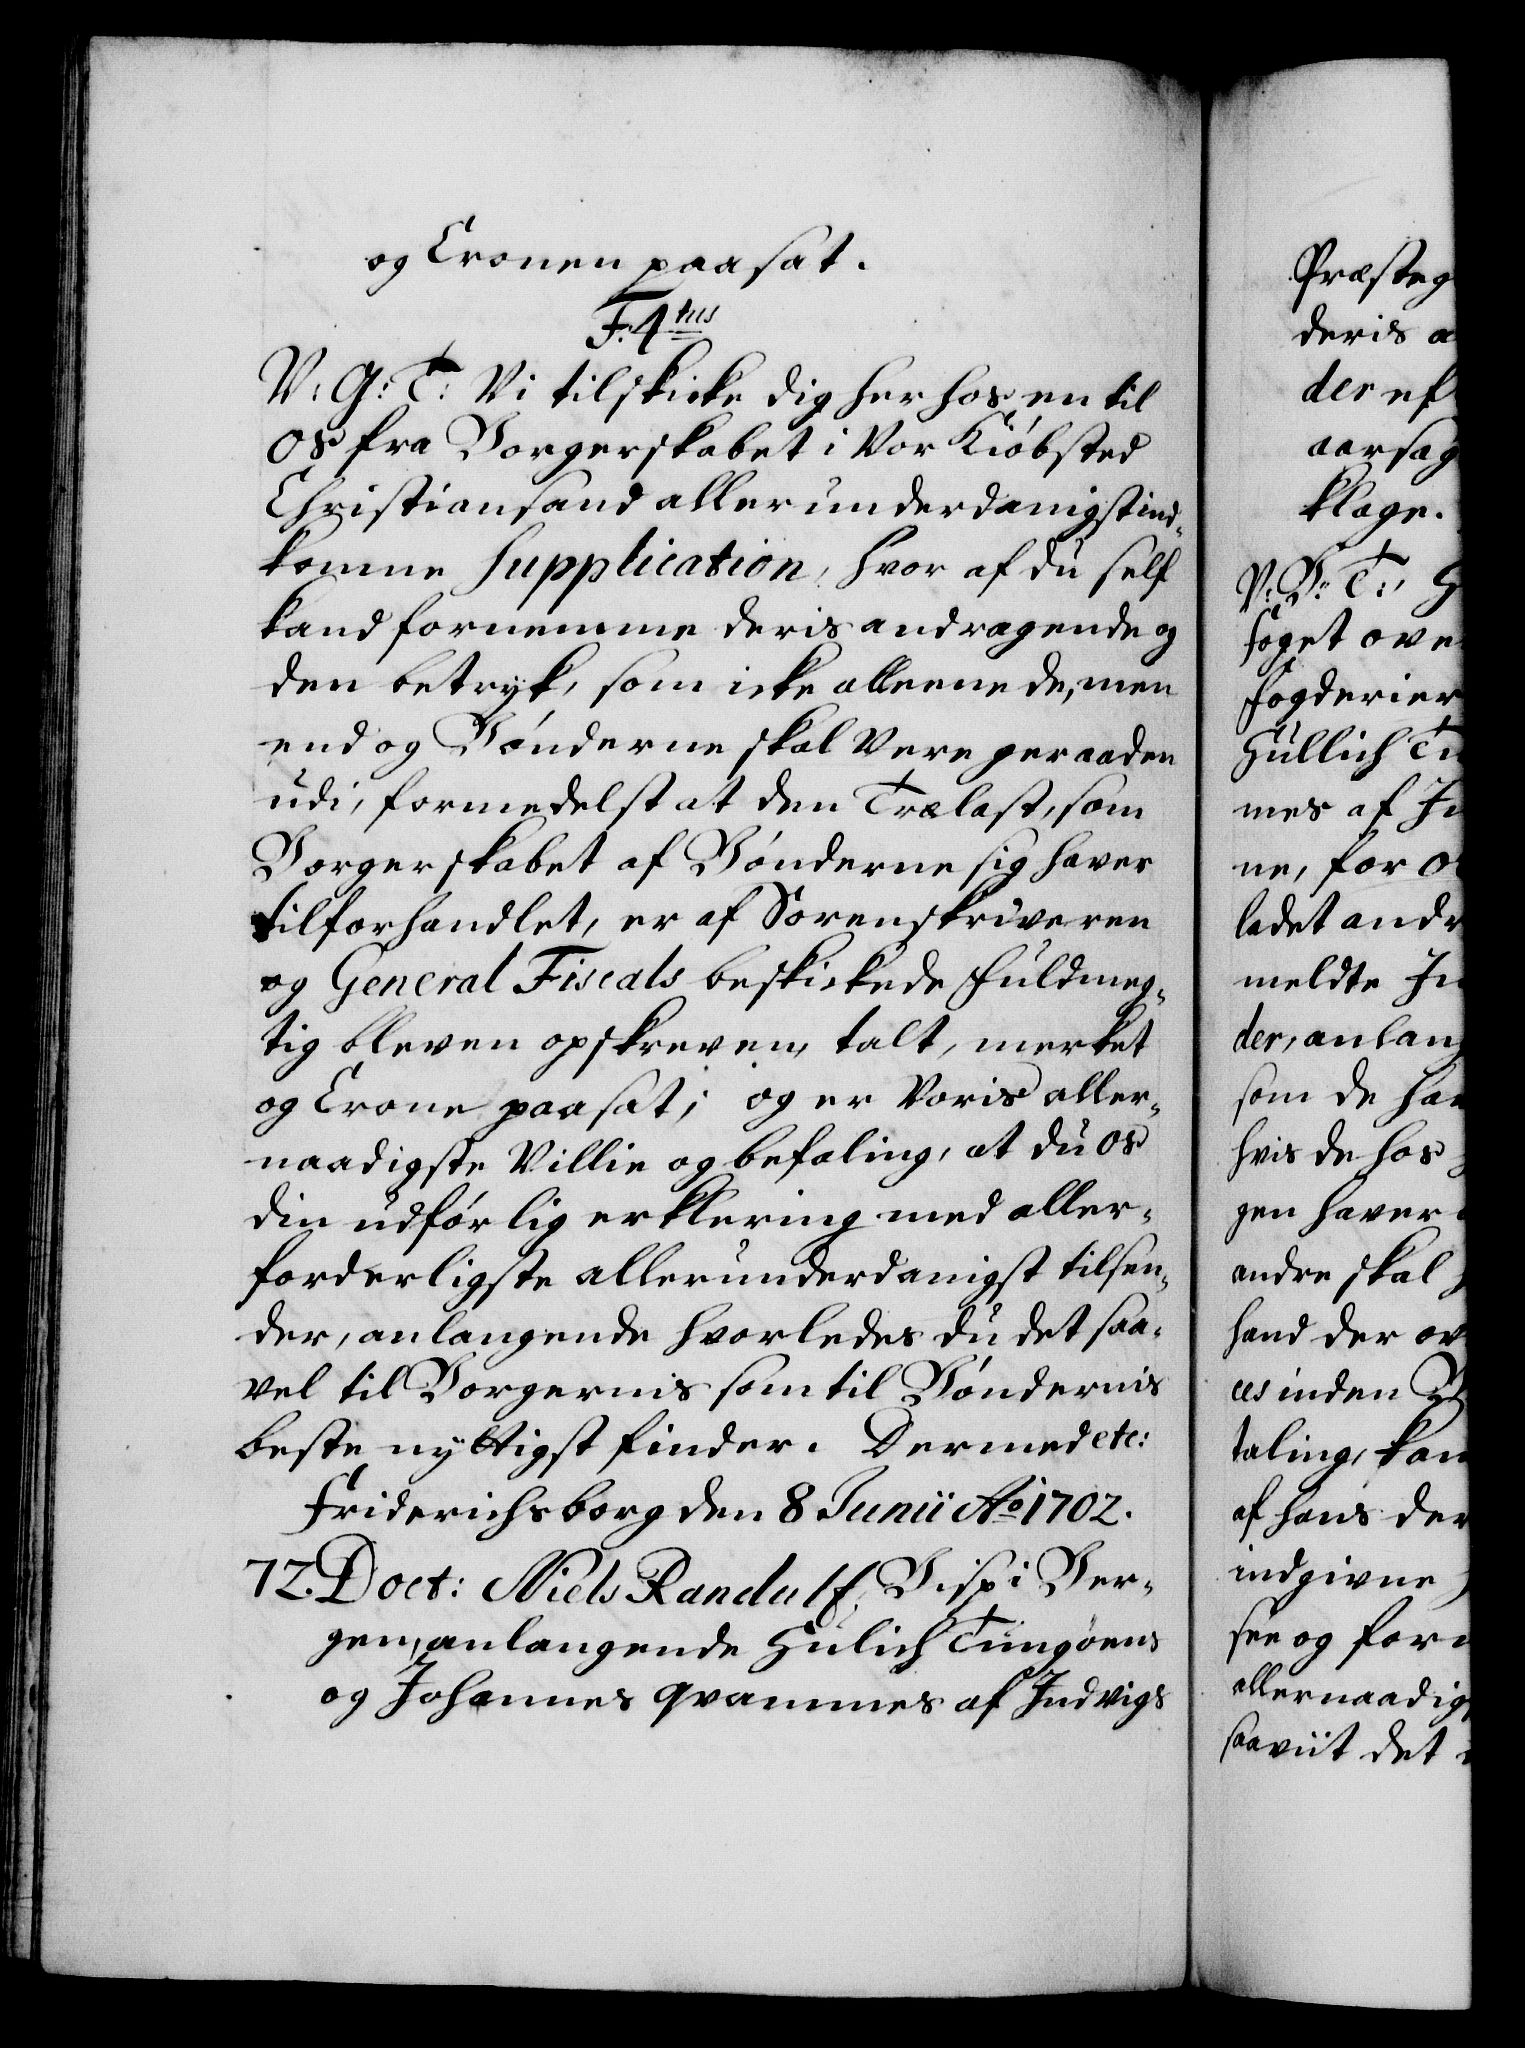 og Cronen paasat.
F. 4tus
V: G: T: Vi tilskicke dig her hos en til
os fra Borgerskabet i Vor Kiøbsted
Christiansand allerunderdanigst ind-
komne Supplication, hvor af du self
kand fornemme deris andragende og
den betryk, som icke alleene de, men
end og Bønderne skal Vere geraaden
udi, formedelst at den Trælast, som
Borgerskabet af Bønderne sig haver
tilforhandlet, er af Sorenskriveren
og General Fiscals beskickede Fuldmeg-
tig bleven opskreven, talt, merket
og Crone paasat; og er Voris aller-
naadigste Villie og befaling, at du os
din udførlig erklering med aller-
forderligste allerunderdanigst tilsen-
der, anlangende hvorledes du det saa-
vel til Borgernis som til Bøndernis
beste nyttigst finder. Dermed etc:
Friderichsborg den 8 Junii Ao 1702.
72. Doct: Niels Randulf, Bisp i Ber-
gen, anlangende Gulich Timgøens
og Johannes Qvammes af Indvigs
Præsteg
deris a
der ef
aarsag
klage.
V: G: T:, G
Foget ove
Fogderier
Gullich Ti
mes af In
ne, for o
ladet andr
meldte In
der, anlang
som de ha
hvis de hos
gen haver
andre skal
hand der ov
es inden
taling, kan
af hans der
indgivne
see og forn
allernaadig
saaviit det